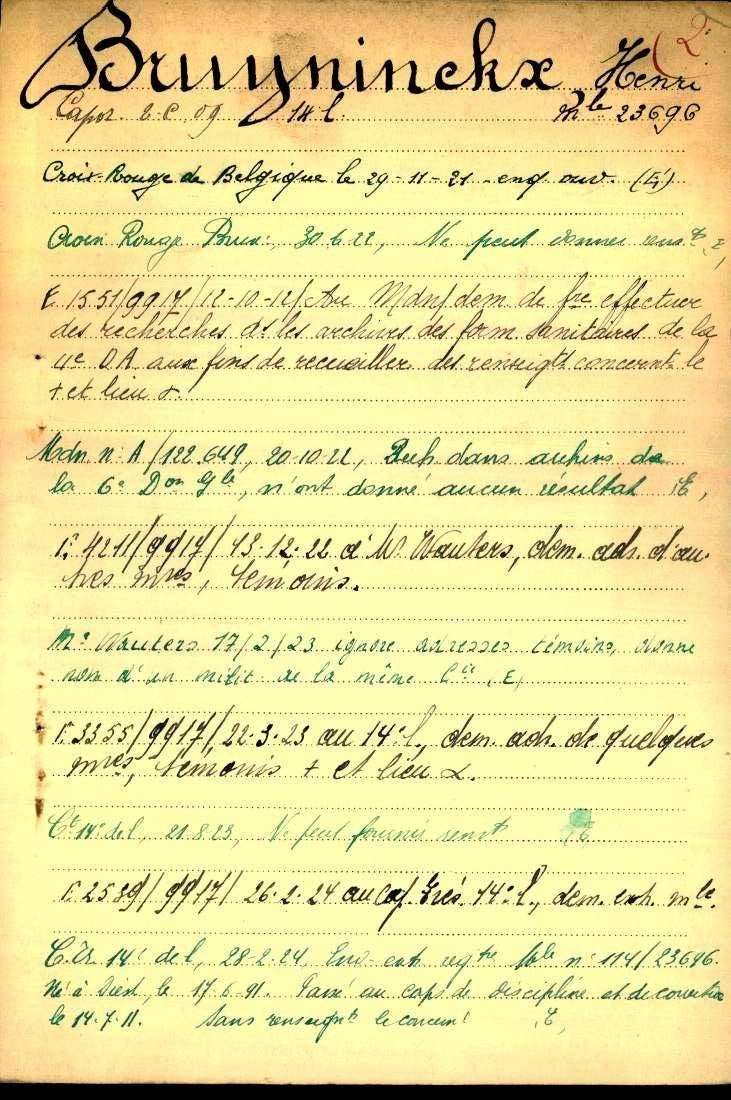 Bruyninckx Henri (2
Capor. 2.C 09 14 l. Mle 23696
Croix-Rouge de Belgique le 29-11-21 enq. ouv. (E)
Croix Rouge Brux:, 30.6.22, Ne peut donner renst E,
E. 1551/9917/12-10-12/Au Mdn/dem de fre effectuer
des recherches ds les archives des form sanitaires de la
4e DA aux fins de recueiller des renseigts concernt le
+ et lieu
Mdn n: A/122.649, 20-10-22, Rech dans archives de
la 6e Don Gle, n'ont donné aucun résultat E,
E. 4211/9917/13-12-22 à Mr Wauters, dem. adr. d'au-
tres mres, témoins.
Mr Wauters 17/2/23 ignore adresses témoins, donne
nom d'un milit de la même Cie, E,
E. 3355/9917/22-3-23 au 14e l., dem. adr. de quelques
mres, témoins + et lieu
Ct 14e de l, 21-8-23, Ne peut fournir renst E
E. 2589/9917/26-2-24 au 14e l., dem. ext. mle.
14e de l, 28-2-24, Env. ext regtre Mle n: 114/23696.
Né à Diest, le 17-6-91. Passé au corps de discipline et de correction
le 14-7-11. Sans renseignts le concernt E,